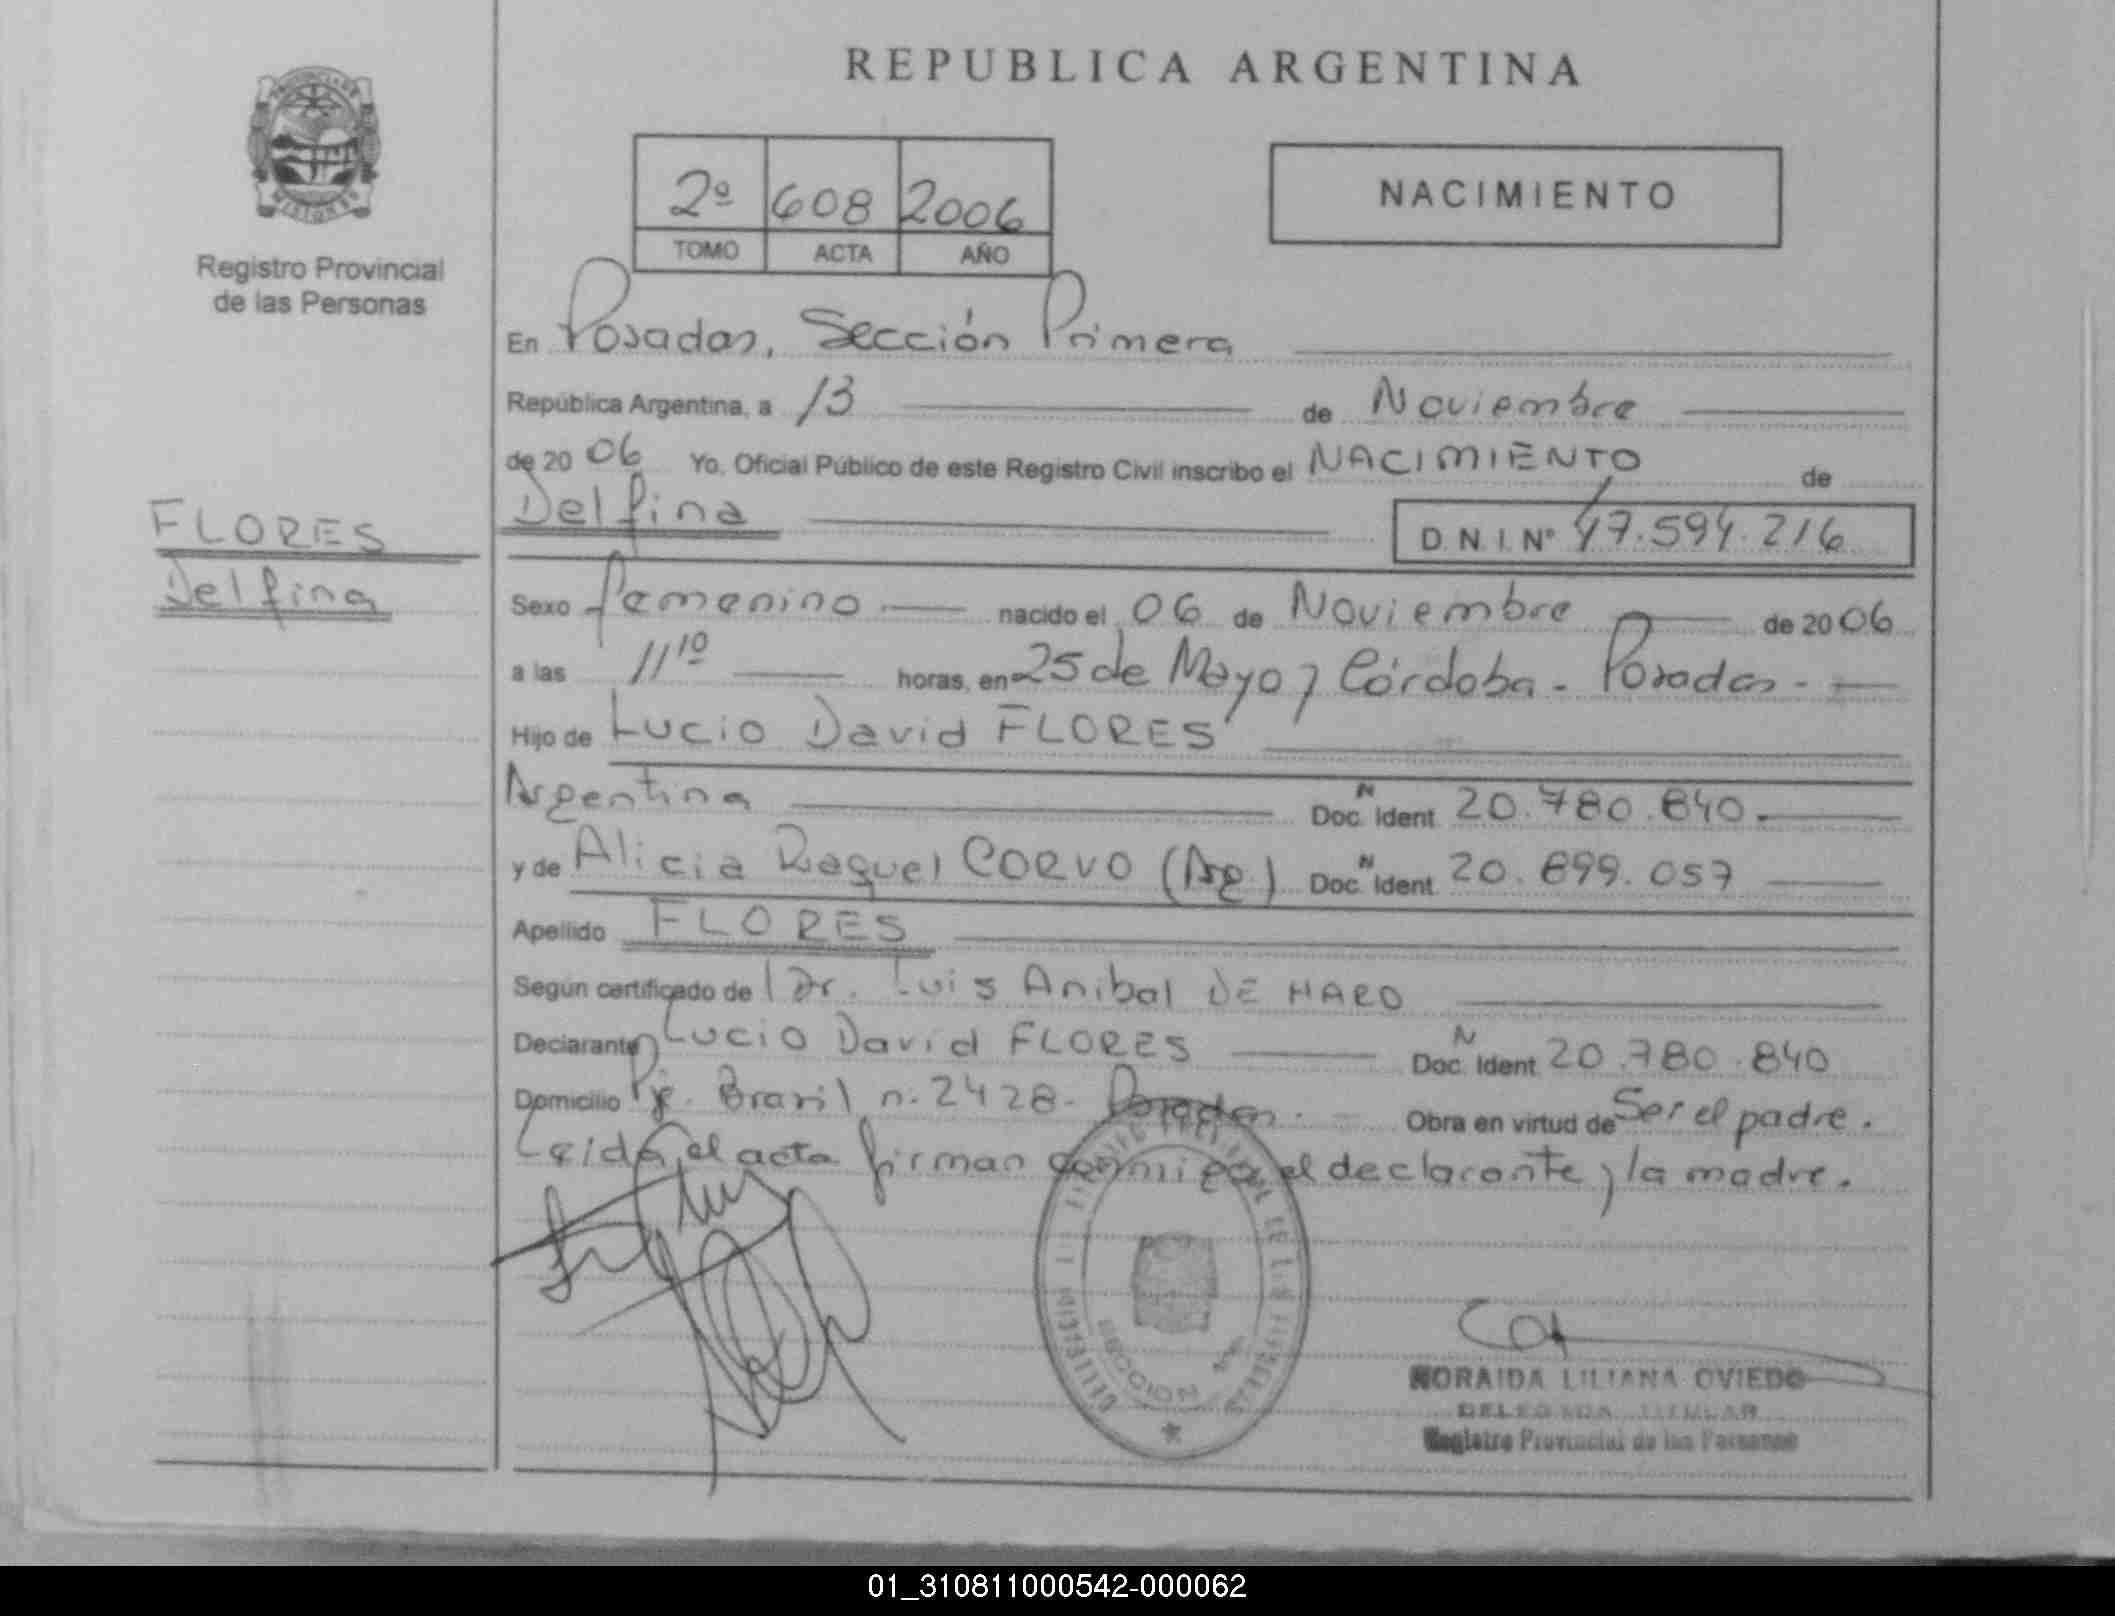 REPUBLICA ARGENTINA
PROVINCIA DE
MISIONES
Registro Provincial
de las Personas
2º 608 2006
TOMO ACTA AÑO
NACIMIENTO
En Posadas, Sección Primera
República Argentina, a 13 de Noviembre
de 2006 Yo, Oficial Público de este Registro Civil inscribo el NACIMIENTO de
Delfina D.N.I. Nº 47.594.216
FLORES
Delfina
Sexo femenino nacido el 06 de Noviembre de 2006
a las 11 10 horas, en 25 de Mayo y Córdoba - Posadas -
Hijo de Lucio David FLORES
Argentina Doc. N Ident. 20.780.840.
y de Alicia Raquel CORVO (Arg.) Doc. N Ident. 20.899.057
Apellido FLORES
Según certificado de Dr. Luis Anibal DE HARO
Declarante Lucio David FLORES Doc. N Ident. 20.780.840
Domicilio Pje. Brasil n. 2428 - Posadas. Obra en virtud de Ser el padre.
Leída el acta firman conmigo el declarante y la madre.
SECCION
NORAIDA LILIANA OVIEDO
DELEGADA TITULAR
Registro Provincial de las Personas
01_310811000542-000062